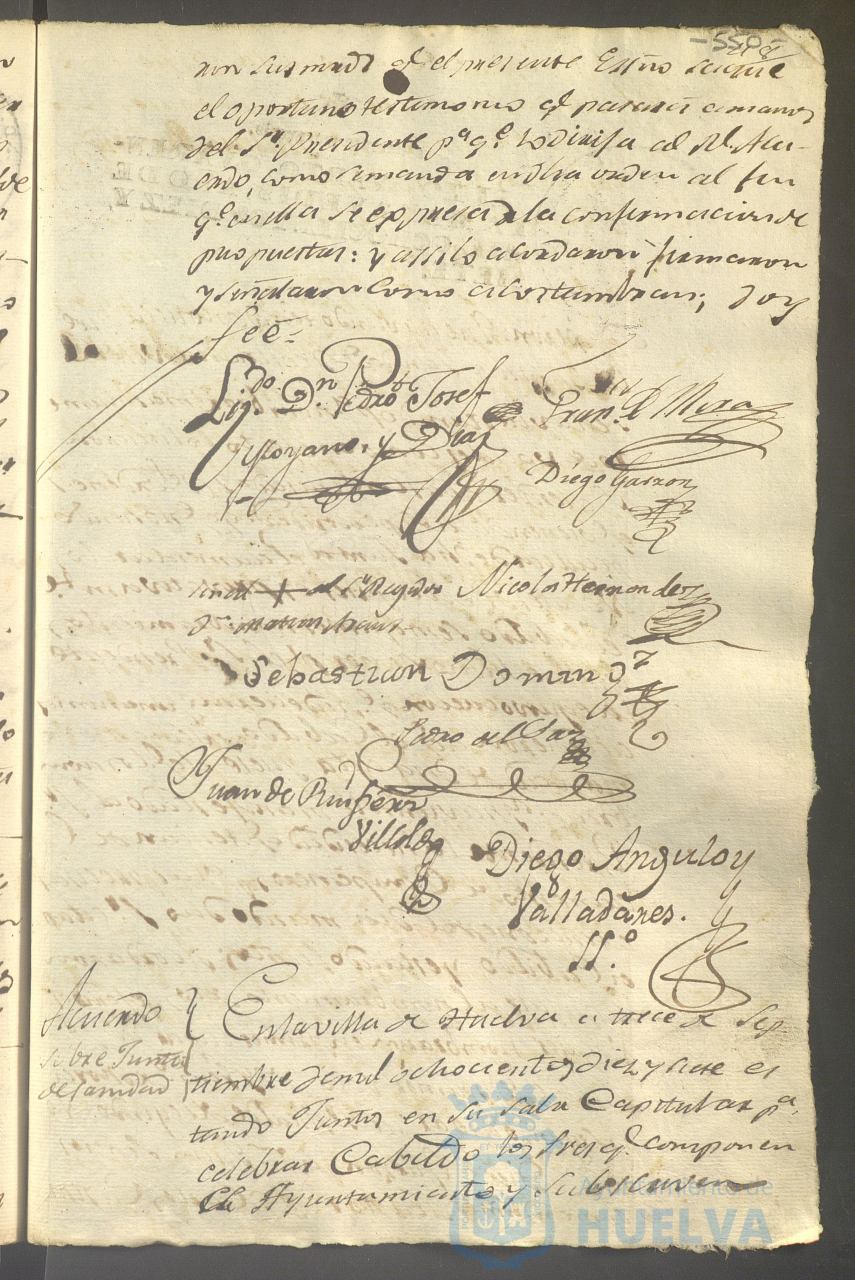 ron sus mrds qe el presente Essno saque
el oportuno testimonio qe pasará a manos
del Sr Presidente pa qe lo dirija al Rl. Acu-
erdo, como se manda en dha orden al fin
qe en ella se expresa de la confirmacion de
propuestas: y assi lo acordaron firmaron
y señalaron como acostumbran; doy
feê=
Lizdo. Dn Pedro Josef
Moyano, y Diaz
Franco. de Mora
Diego Garzon
Señal + del Sr Regidor
Nicolas Hernandez
Sebastian Doming.z
Pedro del Paz
Juan de
Villalda
Diego Angulo y
Valladares.
SS.o
Acuerdo
sobre Junta
de sanidad
En la villa de Huelva a trece de Sep-
tiembre de mil ochocientos diez y siete es
tando Juntos en su sala Capitular pa.
celebrar Cabildo los Sres q.e componen
El Ayuntamiento y subscriven
Ayuntamiento de
HUELVA